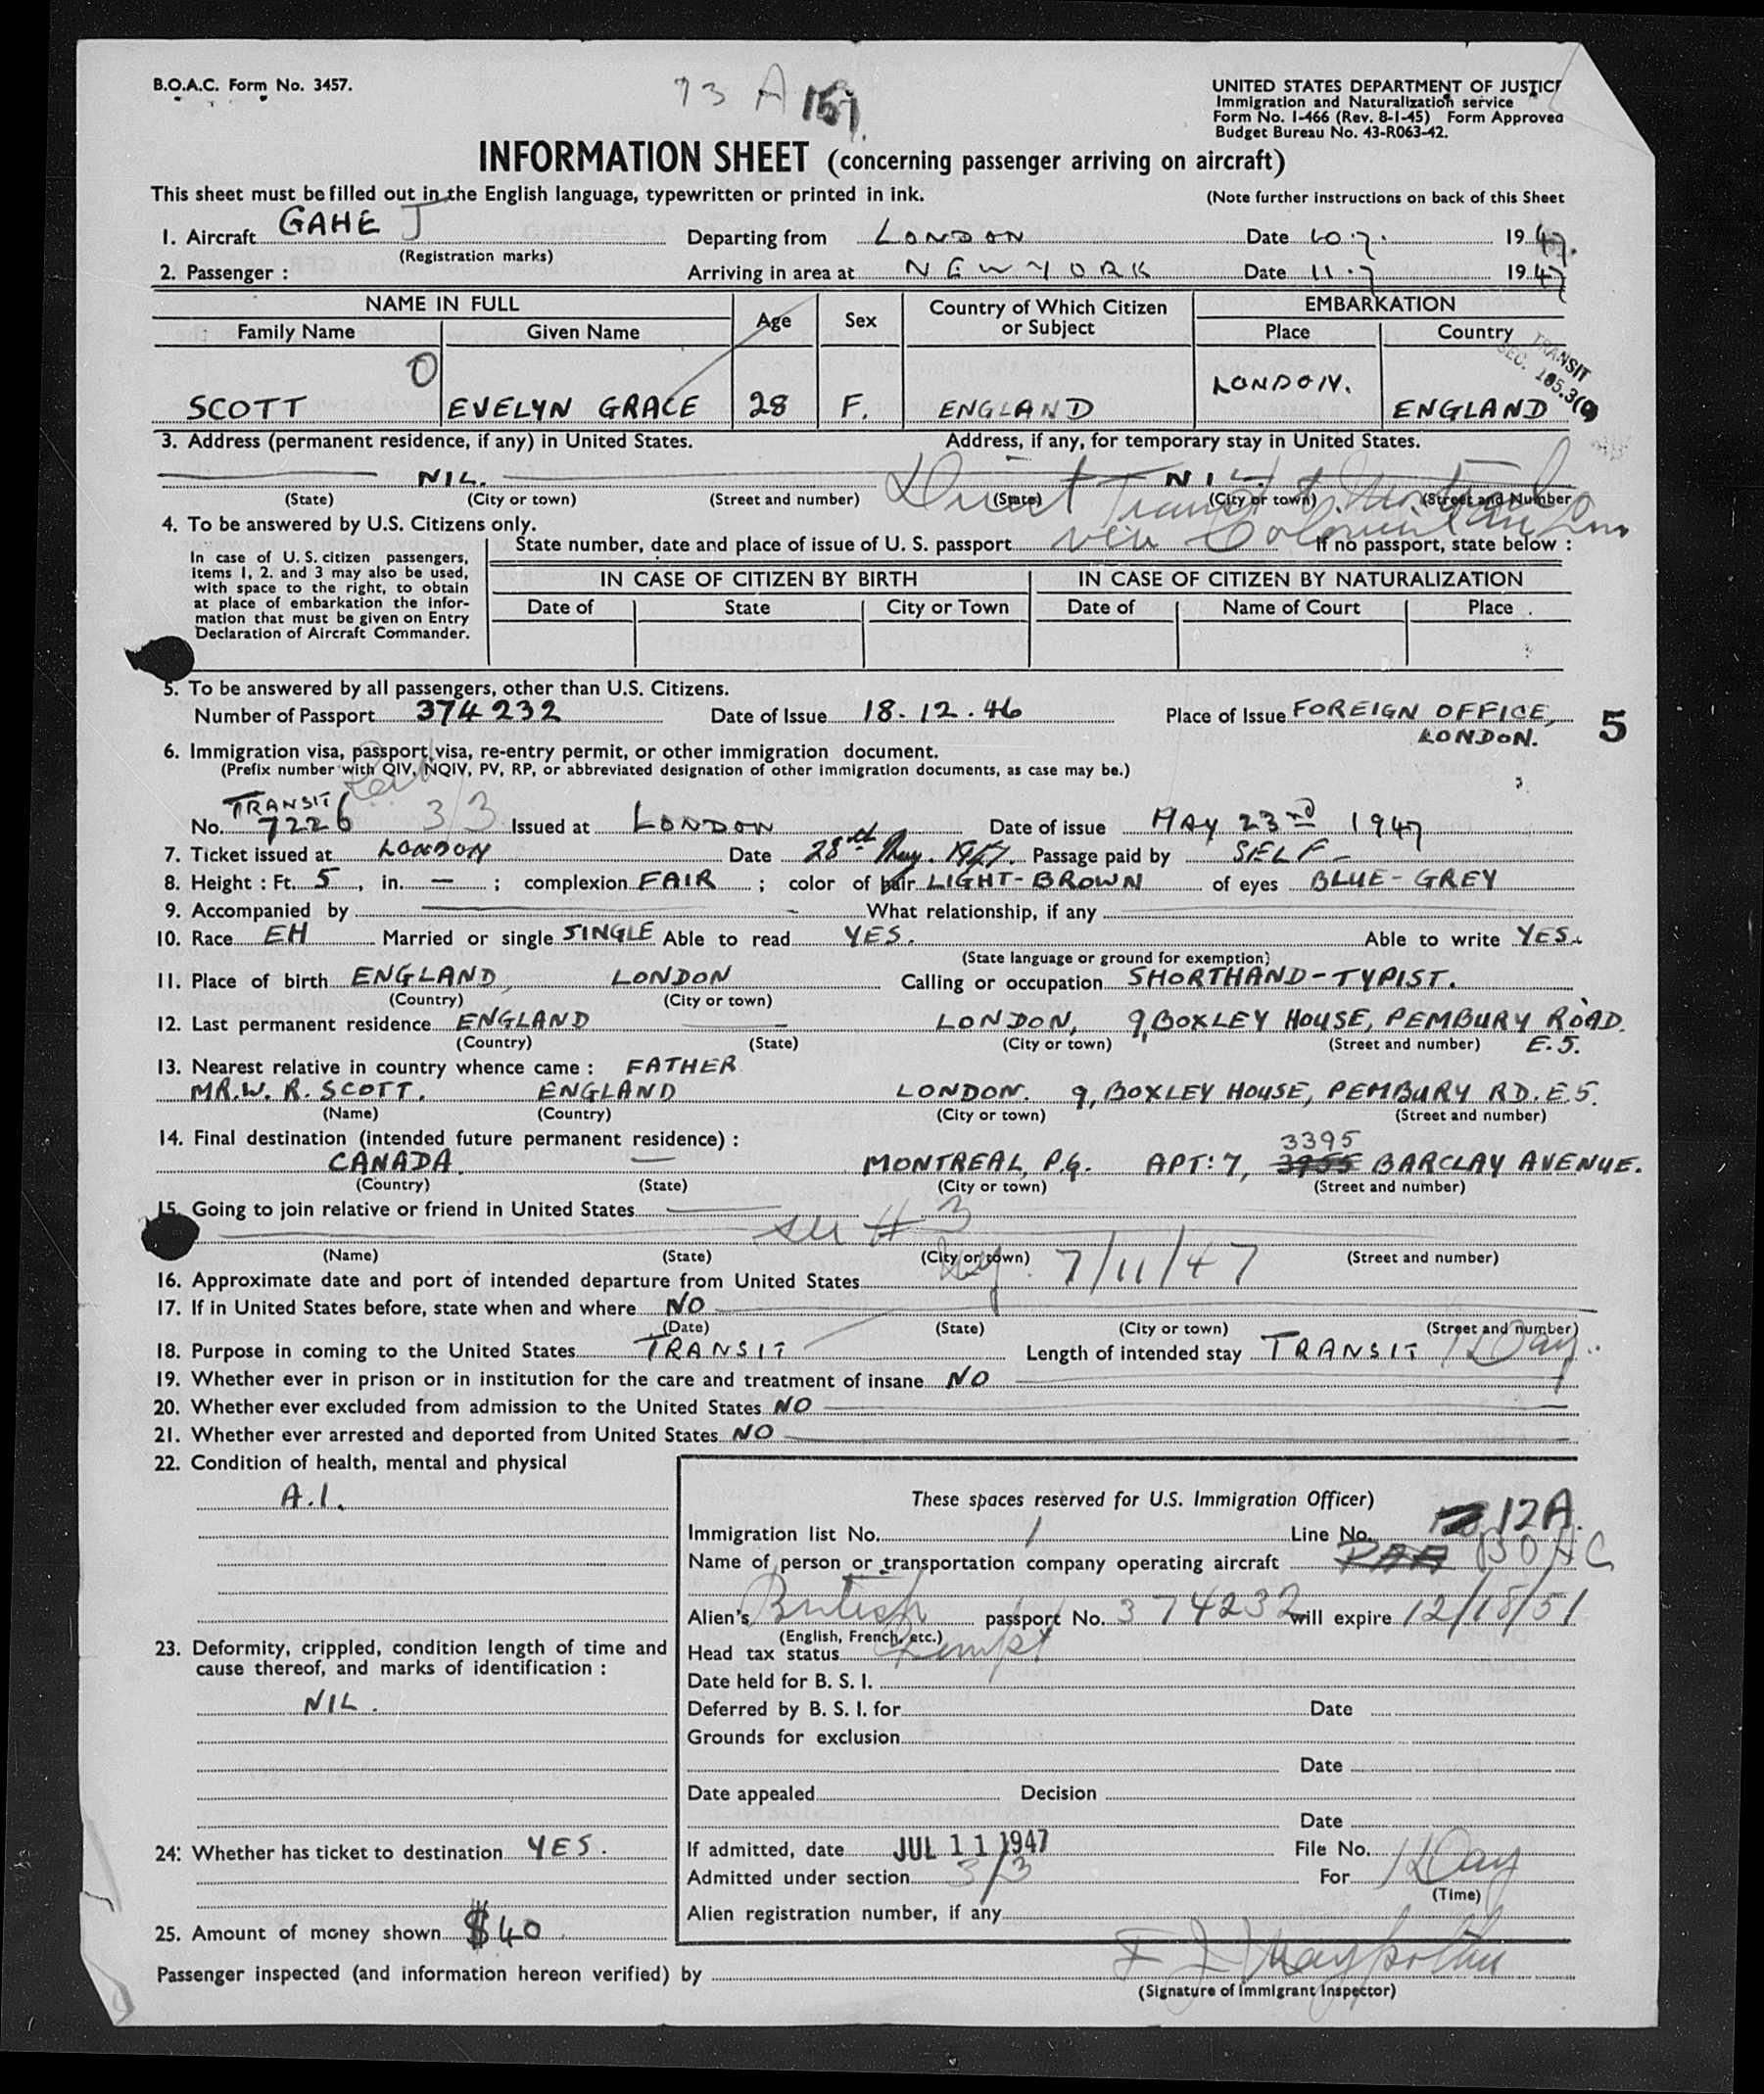 B.O.A.C. Form No. 3457.
73 A 157.
UNITED STATES DEPARTMENT OF JUSTICE
Immigration and Naturalization service
Form No. I-466 (Rev. 8-1-45) Form Approved
Budget Bureau No. 43-R063-42.
INFORMATION SHEET (concerning passenger arriving on aircraft)
This sheet must be filled out in the English language, typewritten or printed in ink. (Note further instructions on back of this Sheet
1. Aircraft GAHE J Departing from LONDON Date 10.7. 1947.
(Registration marks)
2. Passenger : Arriving in area at NEW YORK Date 11.7 1947
NAME IN FULL Age Sex Country of Which Citizen or Subject EMBARKATION
Family Name Given Name Place Country
TRANSIT
SEC. 105.3(c)
O
SCOTT EVELYN GRACE 28 F. ENGLAND LONDON. ENGLAND
3. Address (permanent residence, if any) in United States. Address, if any, for temporary stay in United States.
NIL. NIL.
(State) (City or town) (Street and number) (State) (City or town) (Street and Number
Direct Transit to Montreal
via Colonial
4. To be answered by U.S. Citizens only.
State number, date and place of issue of U. S. passport If no passport, state below :
In case of U. S. citizen passengers,
items 1, 2. and 3 may also be used,
with space to the right, to obtain
at place of embarkation the infor-
mation that must be given on Entry
Declaration of Aircraft Commander.
IN CASE OF CITIZEN BY BIRTH IN CASE OF CITIZEN BY NATURALIZATION
Date of State City or Town Date of Name of Court Place
5. To be answered by all passengers, other than U.S. Citizens.
Number of Passport 374232 Date of Issue 18.12.46 Place of Issue FOREIGN OFFICE,
LONDON.
5
6. Immigration visa, passport visa, re-entry permit, or other immigration document.
(Prefix number with QIV, NQIV, PV, RP, or abbreviated designation of other immigration documents, as case may be.)
No. TRANSIT 7226 3/3 Issued at LONDON Date of issue MAY 23rd 1947
7. Ticket issued at LONDON Date 28th May. 1947. Passage paid by SELF
8. Height : Ft. 5, in. — ; complexion FAIR ; color of hair LIGHT-BROWN of eyes BLUE-GREY
9. Accompanied by What relationship, if any
10. Race EH Married or single SINGLE Able to read YES. Able to write YES.
(State language or ground for exemption)
11. Place of birth ENGLAND, LONDON Calling or occupation SHORTHAND-TYPIST.
(Country) (City or town)
12. Last permanent residence ENGLAND — LONDON, 9, BOXLEY HOUSE, PEMBURY ROAD.
(Country) (State) (City or town) (Street and number) E.5.
13. Nearest relative in country whence came : FATHER
MR. W. R. SCOTT. ENGLAND LONDON. 9, BOXLEY HOUSE, PEMBURY RD. E.5.
(Name) (Country) (City or town) (Street and number)
14. Final destination (intended future permanent residence) :
3395
CANADA. — MONTREAL, P.Q. APT: 7, 3955 BARCLAY AVENUE.
(Country) (State) (City or town) (Street and number)
15. Going to join relative or friend in United States
see # 3
(Name) (State) (City or town) (Street and number)
16. Approximate date and port of intended departure from United States 7/11/47
17. If in United States before, state when and where NO
(Date) (State) (City or town) (Street and number)
18. Purpose in coming to the United States TRANSIT Length of intended stay TRANSIT 1 Day.
19. Whether ever in prison or in institution for the care and treatment of insane NO
20. Whether ever excluded from admission to the United States NO
21. Whether ever arrested and deported from United States NO
22. Condition of health, mental and physical
A.1.
23. Deformity, crippled, condition length of time and
cause thereof, and marks of identification :
NIL.
24. Whether has ticket to destination YES.
25. Amount of money shown $40
These spaces reserved for U.S. Immigration Officer)
Immigration list No. 1 Line No. 12A.
Name of person or transportation company operating aircraft PAA BOAC
Alien's British passport No. 374232 will expire 12/18/51
(English, French, etc.)
Head tax status Exempt
Date held for B. S. I.
Deferred by B. S. I. for Date
Grounds for exclusion
Date
Date appealed Decision
Date
If admitted, date JUL 11 1947 File No.
Admitted under section 3/3 For 1 Day
(Time)
Alien registration number, if any
Passenger inspected (and information hereon verified) by
(Signature of Immigrant Inspector)